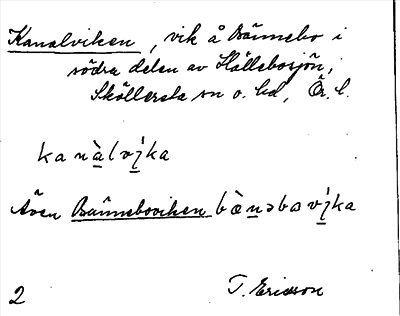 Kanalviken, vik å Bännebo i
södra delen av Hällebosjön,
Sköllersta sn o. hd, Ör. l.
kanàlvi̇́ka
Även Bänneboviken bὲnəbovi̇́ka
2 T. Ericsson